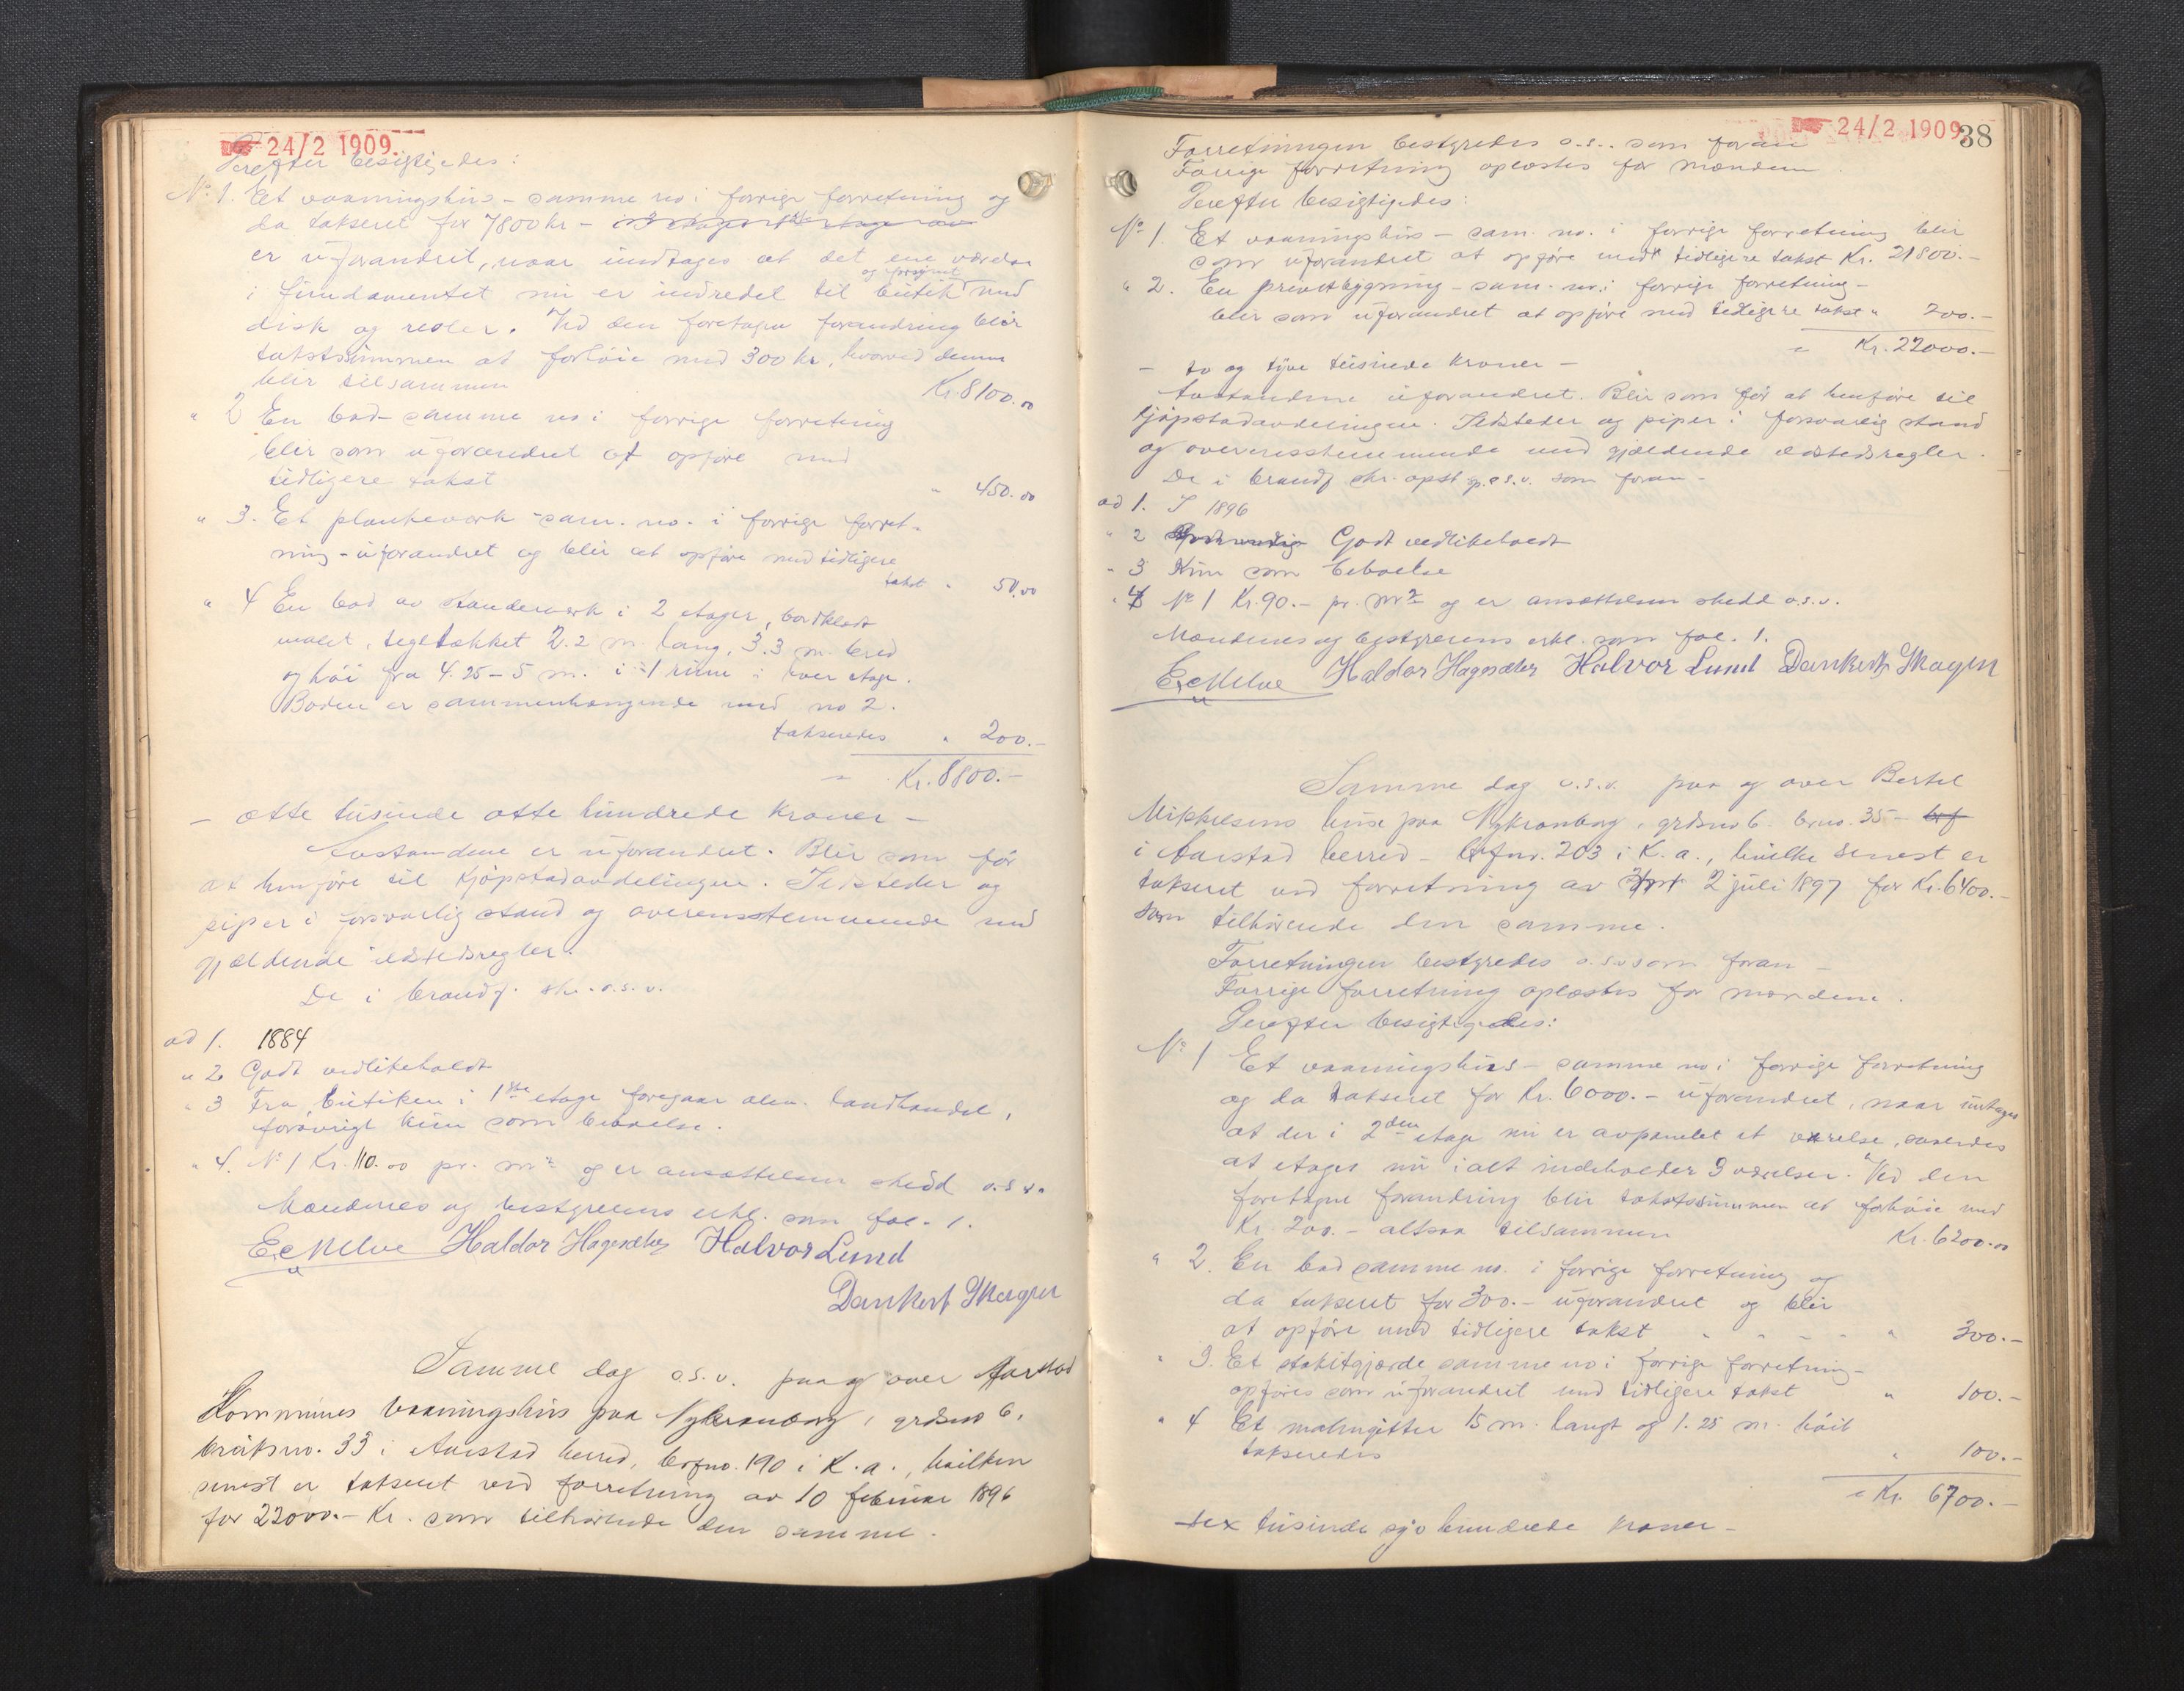 24/2 1909.
Derefter besigtigedes:
No 1. Et vaaningshus - samme no i forrige forretning og
da takseret for 7800 kr -
er uforandret, naar undtages at det ene værelse
og forsynet
i fundamentet nu er indredet til butik med
disk og reoler. Ved den foretagne forandring blir
takstsummen at forhøie med 300 kr, hvorved denne
blir tilsammen Kr. 8100.00
" 2 En bod - samme no i forrige forretning
blir som uforandret at opføre med
tidligere takst " 450.00
" 3. Et plankeverk - sam. no. i forrige forret-
ning - uforandret og blir at opføre med tidligere
takst " 50.00
" 4 En bod av standerverk i 2 etager, bordklædt
malet, tegltækket 2.2 m. lang, 3.3 m. bred
og høi fra 4.25 - 5 m. i - 1 rum i hver etage.
Boden er sammenhængende med no 2.
takseredes " 200.-
= Kr. 8800.-
- otte tusinde otte hundrede kroner -
Avstandene er uforandret. Blir som før
at henføre til kjøpstadavdelingen. Ildsteder og
piper i forsvarlig stand og overensstemmende med
gjældende ildstedsregler.
De i brandf. skr. o.s.v.
ad 1. 1884
" 2 Godt vedlikeholdt
" 3 Fra butiken i 1ste etage foregaar alm. landhandel,
forøvrigt kun som beboelse.
" 4. No 1 Kr. 110.00 pr. m2 og er ansættelsen skedd o.s.v.
Mændenes og bestyrerens erkl. som fol. 1.
Haldor Hagesæter Halvor Lund
Dankert Skagen
Samme dag o.s.v. paa og over Aarstad
Kommunes vaaningshus paa Nykronborg, grdsno 6,
bruksno. 33 i Aarstad herred, brfno. 190 i K.a., hvilken
senest er takseret ved forretning av 10 februar 1896
for 22000.- Kr. som tilhørende den samme.
24/2 1909.
38
Forretningen bestyredes o.s.v. som foran
Forrige forretning oplæstes for mændene.
Derefter besigtigedes:
No 1. Et vaaningshus - sam. no. i forrige forretning blir
som uforandret at opføre med tidligere takst Kr. 21800.-
" 2. En privetbygning - sam. no. i forrige forretning -
blir som uforandret at opføre med tidligere takst " 200.-
= Kr. 22000.-
- to og tyve tusinde kroner -
Avstandene uforandret. Blir som før at henføre til
kjøpstadavdelingen. Ildsteder og piper i forsvarlig stand
og overensstemmende med gjældende ildstedsregler.
De i brandf. skr. opst. sp. o.s.v. som foran -
ad 1. I 1896
" 2 Godt vedlikeholdt
" 3 Kun som beboelse
" 4 No 1 Kr. 90.- pr. m2 og er ansættelsen skedd o.s.v.
Mændenes og bestyrerens erkl. som fol. 1.
Haldor Hagesæter Halvor Lund Dankert Skagen
Samme dag o.s.v. paa og over Bertel
Mikkelsens huse paa Nykronborg, grdsno 6. brno. 35 - brf
i Aarstad herred - Brfnr. 203 i K.a., hvilke senest er
takseret ved forretning av 2 juli 1897 for Kr. 6400.-
som tilhørende den samme.
Forretningen bestyredes o.s.v som foran -
Forrige forretning oplæstes for mændene.
Derefter besigtigedes:
No 1 Et vaaningshus - samme no i forrige forretning
og da takseret for Kr. 6000.- uforandret, naar undtages
at der i 2den etage nu er avpanelet et værelse, saaledes
at etagen nu ialt indeholder 9 værelser. Ved den
foretagne forandring blir takstsummen at forhøie med
Kr. 200.- altsaa tilsammen Kr. 6200.00
" 2. En bod samme no. i forrige forretning og
da takseret for 300.- uforandret og blir
at opføre med tidligere takst " 300.-
" 3. Et stakitgjærde samme no i forrige forretning -
opføres som uforandret med tidligere takst " 100.-
" 4 Et malmgitter 15 m. langt og 1.25 m. høit
takseredes " 100.-
= Kr. 6700.-
- sex tusinde syv hundrede kroner -